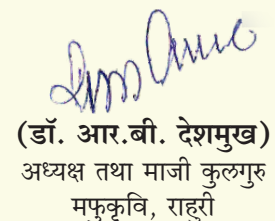 (डॉ. आर.बी. देशमुख)
अध्यक्ष तथा माजी कुलगुरु
मफुकृवि, राहुरी